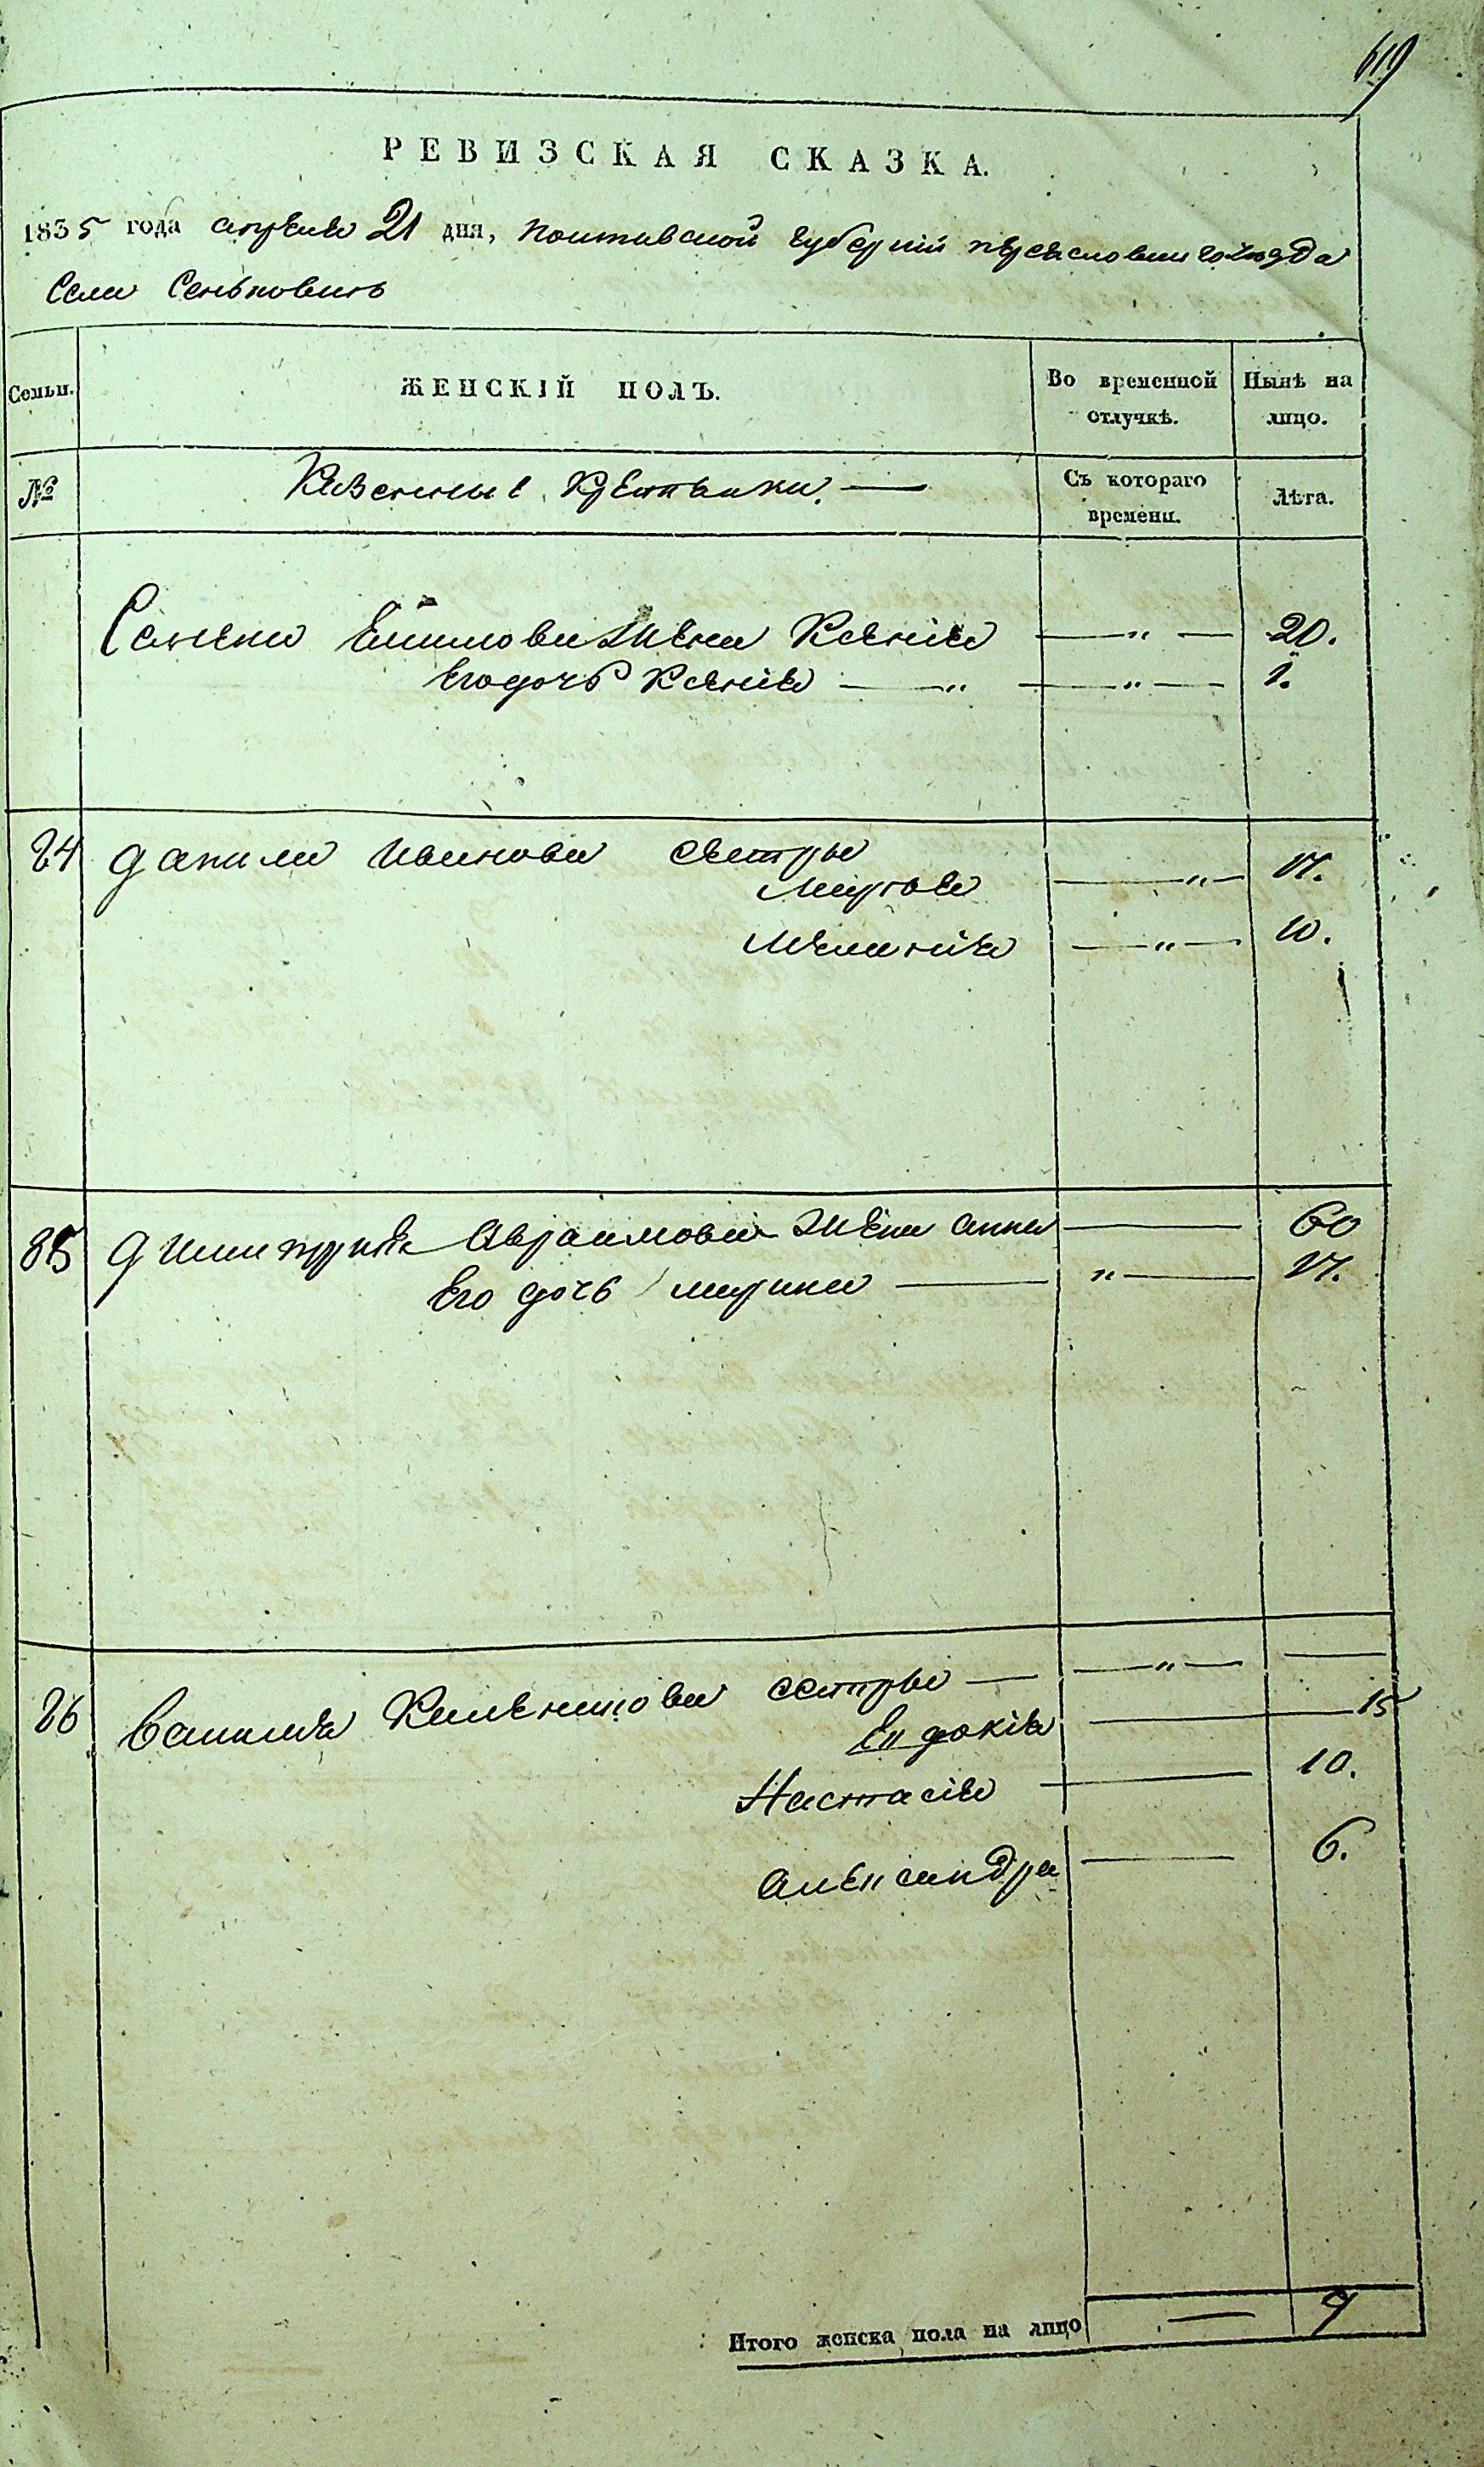 619
РЕВИЗСКАЯ СКАЗКА.
1835 года апреля 21 дня, Полтавской губерніи переясловскаго уезда
села Сеньковикъ
Семьи. ЖЕНСКІЙ ПОЛЪ. Во временной отлучкѣ. Нынѣ на лицо.
№ Казенные крестьянки. — Съ котораго времени. Лѣта.
Семена жена Ксенія — „ — 20.
Его дочь Ксенія — „ — „ — 1.
24 Данила Иванова сестры
Марфа — „ — 17.
Меланія — „ — 10.
25 Димитрия Авраамова жена анна — 60
Его дочь марина — „ — 17.
26 василия Климентова сестры — — „ — —
Евдокія — 15
Настасія — 10.
александра — 6.
Итого женска пола на лицо — 9